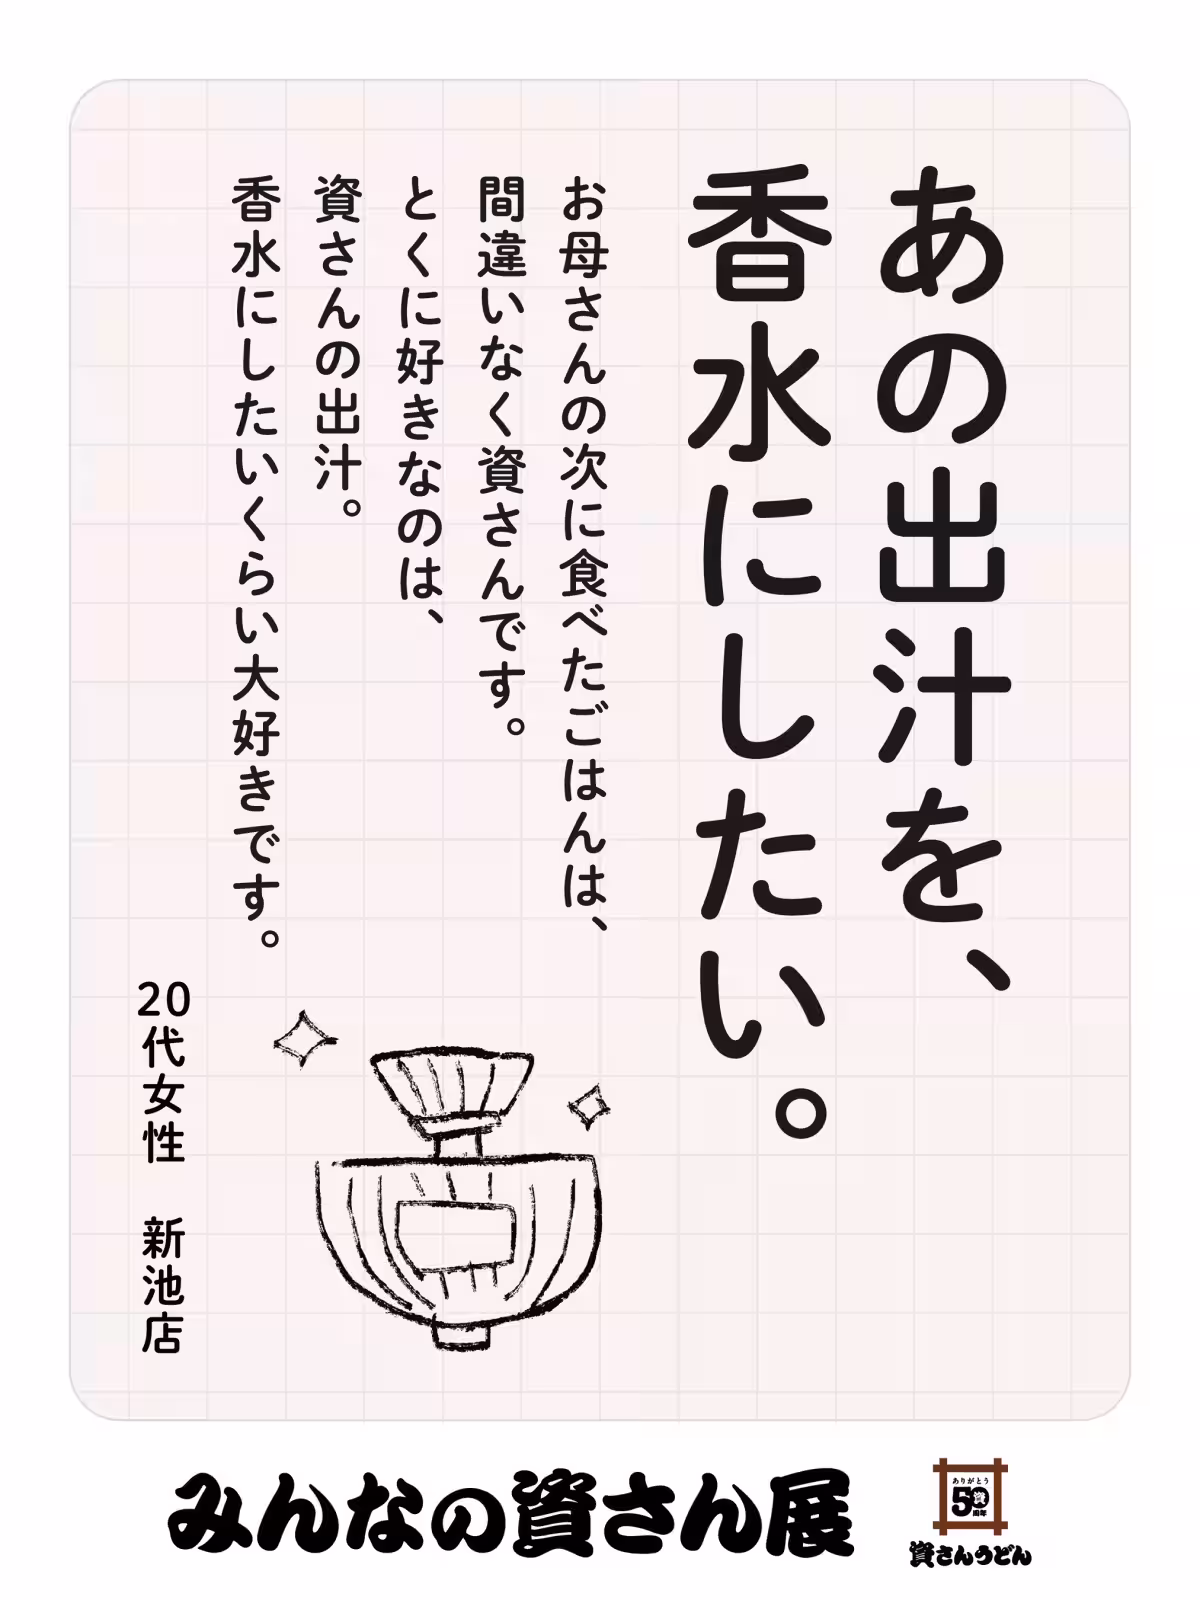 あの出汁を、
香水にしたい。
お母さんの次に食べたごはんは、
間違いなく資さんです。
とくに好きなのは、
資さんの出汁。
香水にしたいくらい大好きです。
20代女性　新池店
みんなの資さん展
ありがとう
50
資
周年
資さんうどん